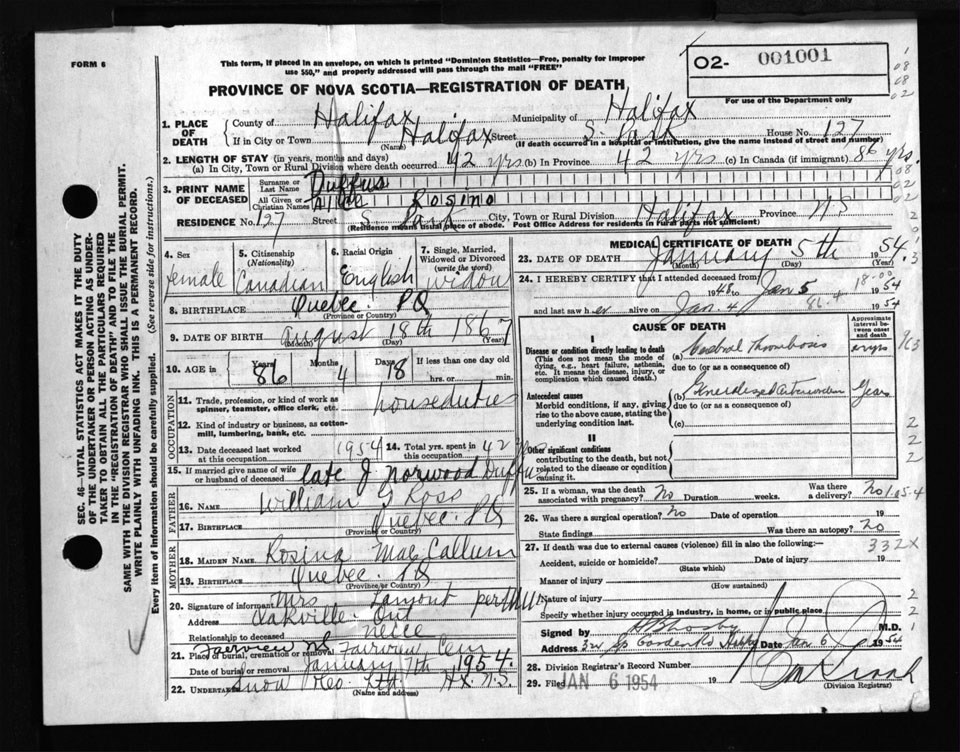 FORM 6
This form, if placed in an envelope, on which is printed "Dominion Statistics—Free, penalty for improper
use $50," and properly addressed will pass through the mail "FREE"
O2- 001001
For use of the Department only
PROVINCE OF NOVA SCOTIA—REGISTRATION OF DEATH
1. PLACE OF DEATH
County of Halifax Municipality of Halifax
If in City or Town Halifax (Name) Street S. Park House No. 127
(If death occurred in a hospital or institution, give the name instead of street and number)
2. LENGTH OF STAY (in years, months and days)
(a) In City, Town or Rural Division where death occurred 42 yrs (b) In Province 42 yrs (c) In Canada (if immigrant) 86 yrs.
3. PRINT NAME OF DECEASED
Surname or Last Name Duffus
All Given or Christian Names Rosino
RESIDENCE No. 127 Street S Park City, Town or Rural Division Halifax Province NS
(Residence means usual place of abode. Post Office Address for residents in rural parts not sufficient)
4. Sex female
5. Citizenship (Nationality) Canadian
6. Racial Origin English
7. Single, Married, Widowed or Divorced (write the word) widow
8. BIRTHPLACE Quebec. PQ
(Province or Country)
9. DATE OF BIRTH August 18th 1867
(Month) (Day) (Year)
10. AGE in Years 86 Months 4 Days 18 If less than one day old
hrs. or min.
OCCUPATION
11. Trade, profession, or kind of work as spinner, teamster, office clerk, etc. houseduties
12. Kind of industry or business, as cotton-mill, lumbering, bank, etc.
13. Date deceased last worked at this occupation 1954 14. Total yrs. spent in this occupation 42 yrs
15. If married give name of wife or husband of deceased late J Norwood Duffus
FATHER
16. NAME William G Ross
17. BIRTHPLACE Quebec. PQ
(Province or Country)
MOTHER
18. MAIDEN NAME Rosina Mac Callum
19. BIRTHPLACE Quebec. PQ
(Province or Country)
20. Signature of informant Mrs Lamont
Address Oakville Ont
Relationship to deceased neice
21. Place of burial, cremation or removal Fairview Cem
Date of burial or removal January 7th 1954.
22. UNDERTAKER Snow & Co. Ltd. Hx. N.S.
(Name and address)
MEDICAL CERTIFICATE OF DEATH
23. DATE OF DEATH January 5th 1954
(Month) (Day) (Year)
24. I HEREBY CERTIFY that I attended deceased from
1948 to Jan 5 1954
and last saw her alive on Jan. 4 1954
CAUSE OF DEATH
Approximate interval between onset and death
I
Disease or condition directly leading to death
(This does not mean the mode of dying, e.g., heart failure, asthenia, etc. It means the disease, injury, or complication which caused death.)
(a) Cerebral Thrombosis
due to (or as a consequence of)
Antecedent causes
Morbid conditions, if any, giving rise to the above cause, stating the underlying condition last.
(b) Generalized Years
due to (or as a consequence of)
(c)
II
Other significant conditions
contributing to the death, but not related to the disease or condition causing it.
25. If a woman, was the death associated with pregnancy? No Duration weeks. Was there a delivery? No
26. Was there a surgical operation? No Date of operation 19
State findings Was there an autopsy? No
27. If death was due to external causes (violence) fill in also the following:— 332X
Accident, suicide or homicide? Date of injury 19
(State which)
Manner of injury
(How sustained)
Nature of injury
Specify whether injury occurred in industry, in home, or in public place
Signed by M.D.
Address Date Jan 6 1954
28. Division Registrar's Record Number
29. Filed JAN 6 1954 19
(Division Registrar)
SEC. 46—VITAL STATISTICS ACT MAKES IT THE DUTY
OF THE UNDERTAKER OR PERSON ACTING AS UNDER-
TAKER TO OBTAIN ALL THE PARTICULARS REQUIRED
IN THE "REGISTRATION OF DEATH" AND TO FILE THE
SAME WITH THE DIVISION REGISTRAR WHO SHALL ISSUE THE BURIAL PERMIT.
WRITE PLAINLY WITH UNFADING INK. THIS IS A PERMANENT RECORD.
Every item of information should be carefully supplied. (See reverse side for instructions.)